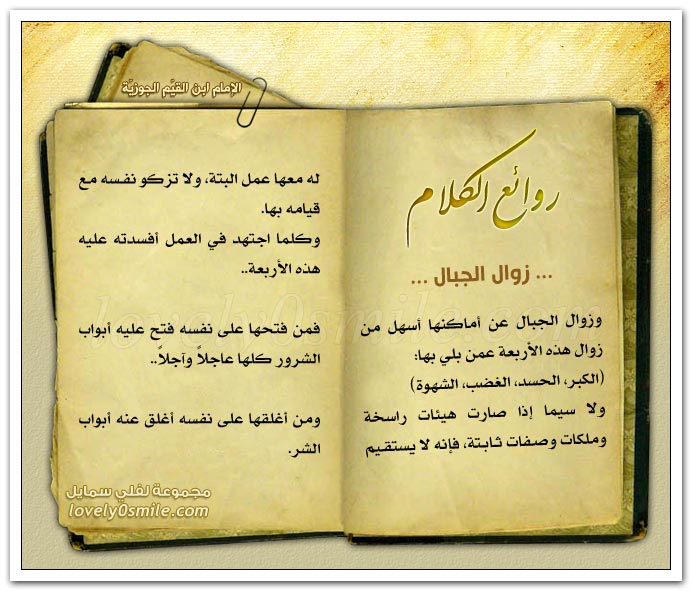 الإمام ابن القيَّم الجوزيَّة
روائع الكلام
... زوال الجبال ...
وزوال الجبال عن أماكنها أسهل من
زوال هذه الأربعة عمن بلي بها:
(الكبر، الحسد، الغضب، الشهوة)
ولا سيما إذا صارت هيئات راسخة
وملكات وصفات ثابتة، فإنه لا يستقيم
له معها عمل البتة، ولا تزكو نفسه مع
قيامه بها.
وكلما اجتهد في العمل أفسدته عليه
هذه الأربعة..
فمن فتحها على نفسه فتح عليه أبواب
الشرور كلها عاجلاً وآجلاً..
ومن أغلقها على نفسه أغلق عنه أبواب
الشر.
مجموعة لفلي سمايل
lovely0smile.com
lovely0smile.com